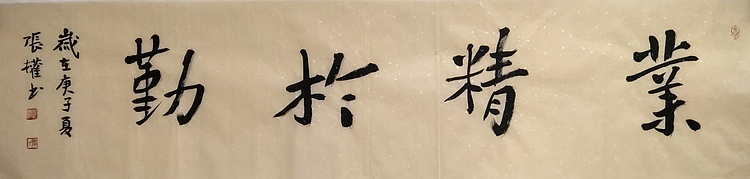 業精於勤
歲在庚子夏
張權书